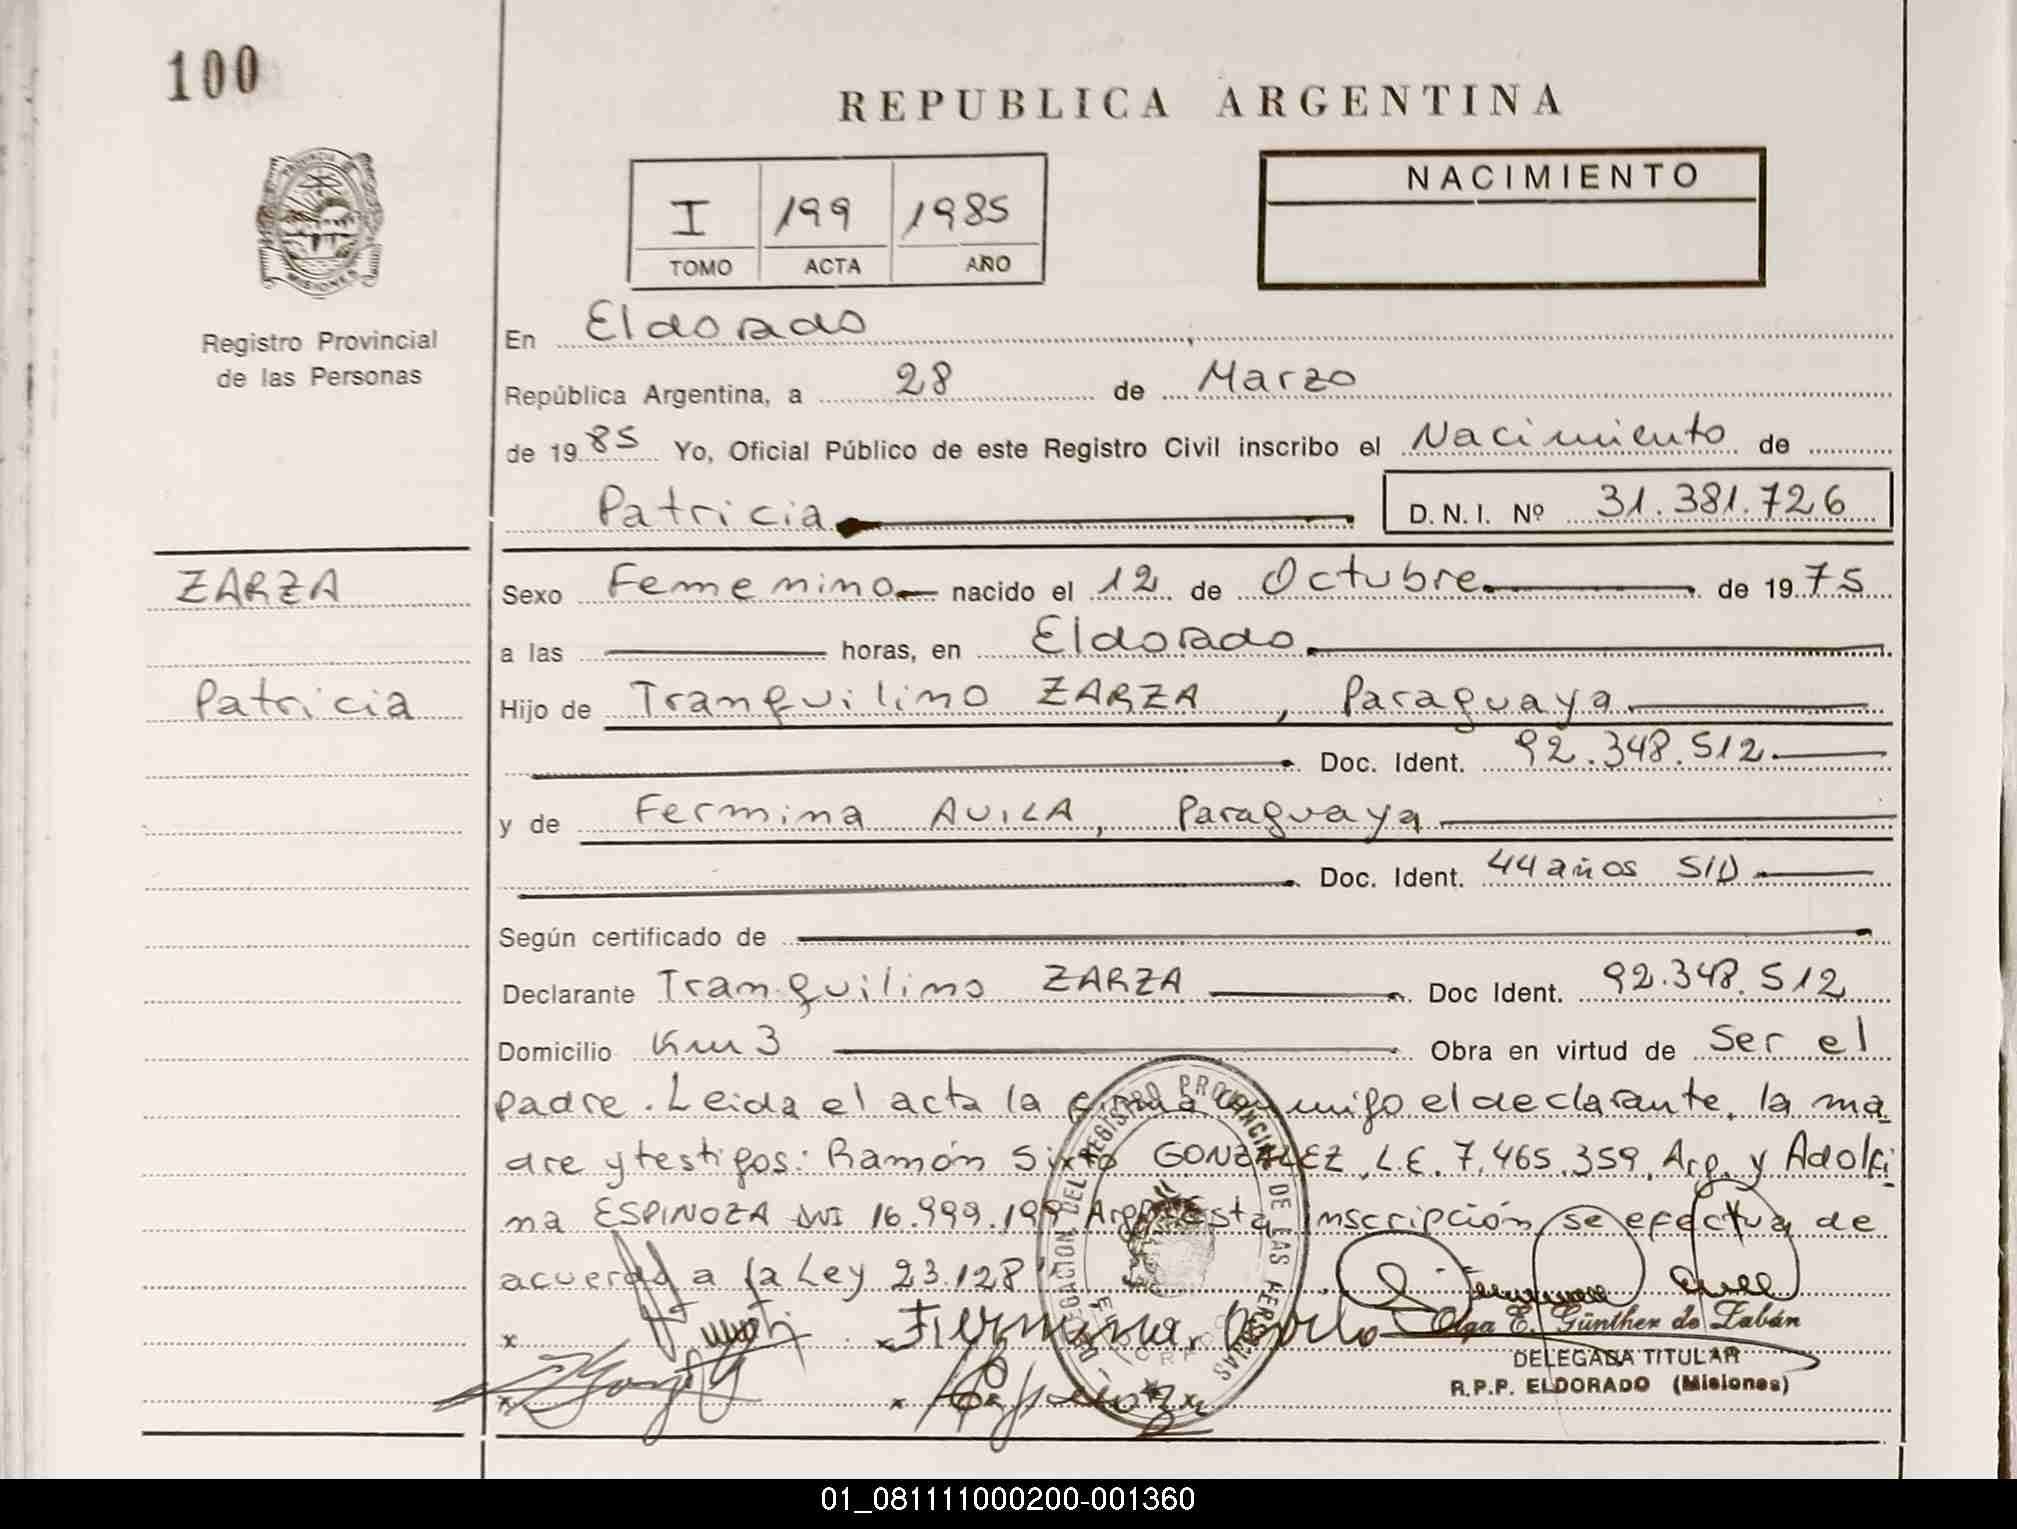 100
REPUBLICA ARGENTINA
NACIMIENTO
I 199 1985
TOMO ACTA AÑO
PROVINCIA DE MISIONES
Registro Provincial
de las Personas
En Eldorado
República Argentina, a 28 de Marzo
de 1985 Yo, Oficial Público de este Registro Civil inscribo el Nacimiento de
Patricia D.N.I. Nº 31.381.726
ZARZA
Patricia
Sexo Femenino nacido el 12 de Octubre de 1975
a las horas, en Eldorado
Hijo de Tranquilino ZARZA, Paraguaya
Doc. Ident. 92.348.512
y de Fermina AVILA, Paraguaya
Doc. Ident. 44 años S/D
Según certificado de
Declarante Tranquilino ZARZA Doc Ident. 92.348.512
Domicilio Km 3 Obra en virtud de Ser el
padre. Leida el acta la firma conmigo el declarante, la ma
dre y testigos: Ramón Sixto GONZALEZ, L.E. 7.465.359, Arg. y Adolfi
na ESPINOZA DNI 16.999.199 Arg. Esta inscripción se efectua de
acuerdo a la Ley 23.128
DELEGACION DEL REGISTRO PROVINCIAL DE LAS PERSONAS
ELDORADO
Fermina
Olga E. Günther de Zabán
DELEGADA TITULAR
R.P.P. ELDORADO (Misiones)
01_081111000200-001360